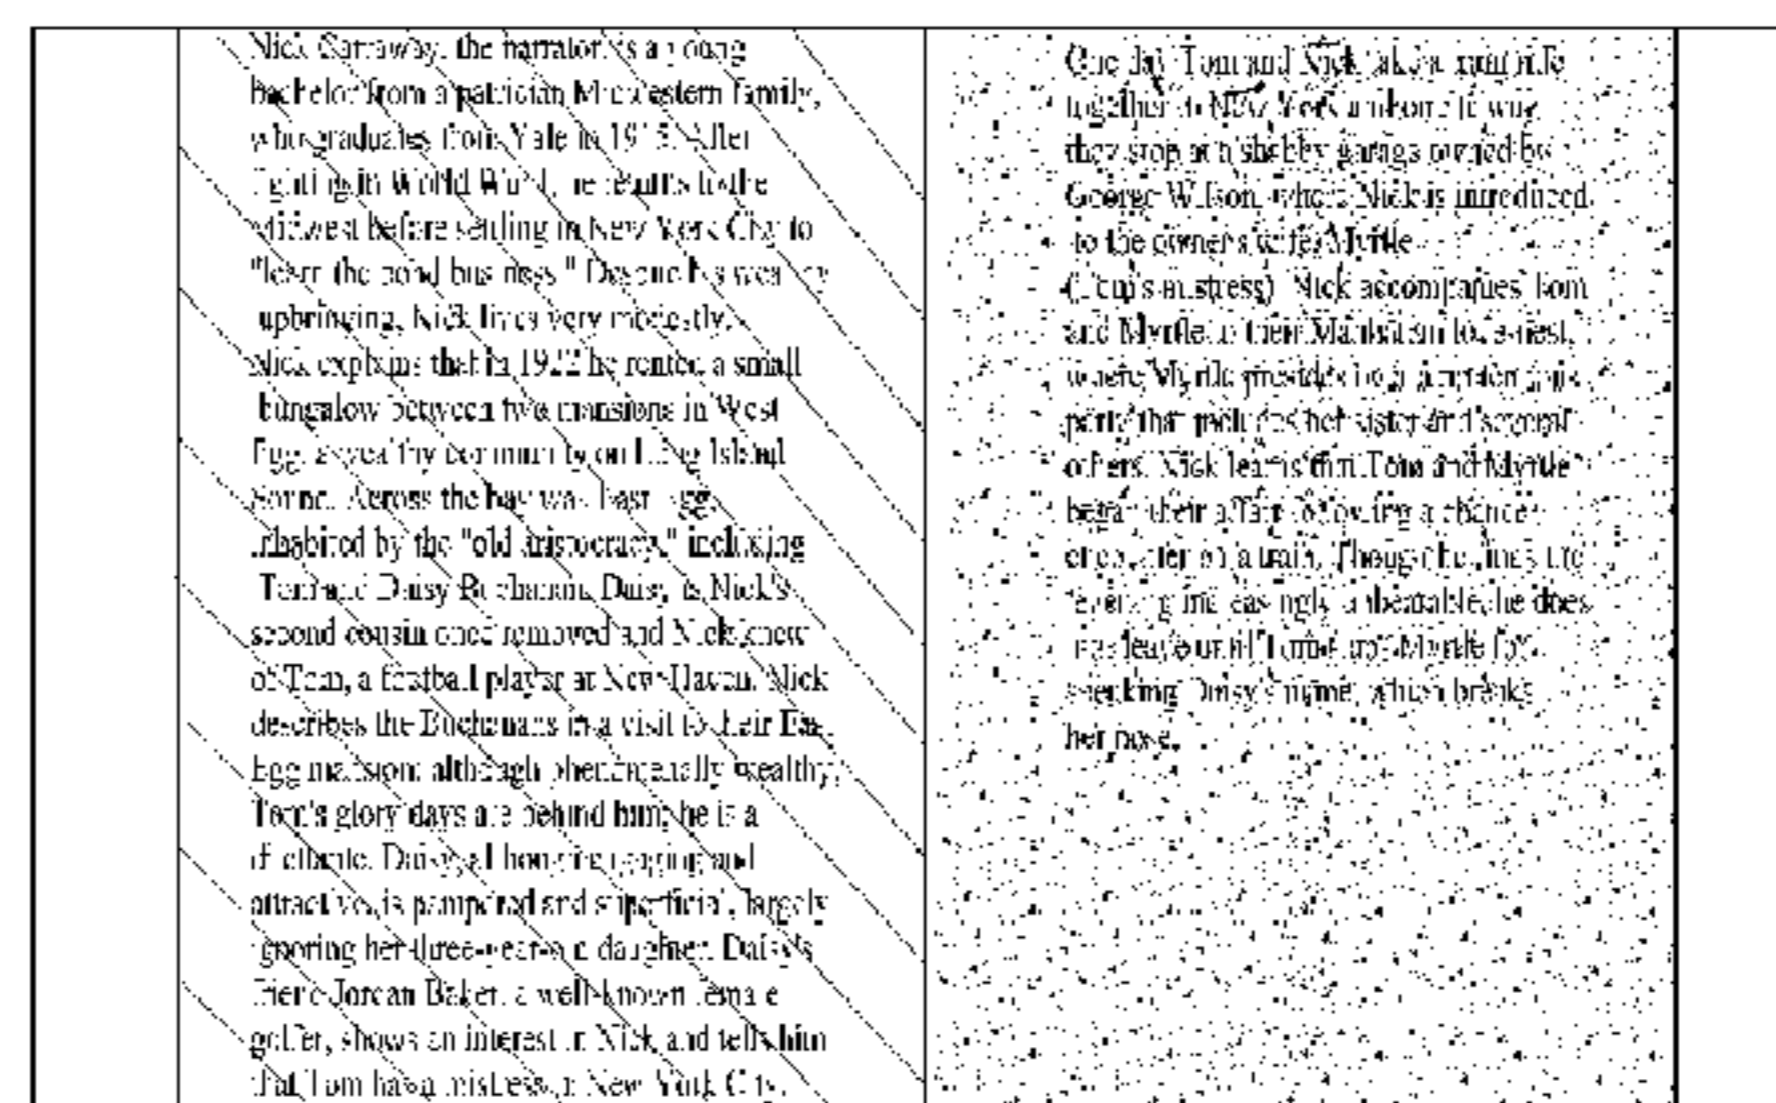 Nick Carraway, the narrator, is a young
bachelor from a patrician Midwestern family,
who graduates from Yale in 1915. After
fighting in World War I, he returns to the
Midwest before settling in New York City to
"learn the bond business." Despite his wealthy
upbringing, Nick lives very modestly.
Nick explains that in 1922 he rented a small
bungalow between two mansions in West
Egg, a wealthy community on Long Island
Sound. Across the bay was East Egg
inhabited by the "old aristocracy," including
Tom and Daisy Buchanan. Daisy is Nick's
second cousin once removed and Nick knew
of Tom, a football player at New Haven. Nick
describes the Buchanans in a visit to their East
Egg mansion: although phenomenally wealthy,
Tom's glory days are behind him; he is a
dilettante. Daisy, although engaging and
attractive, is pampered and superficial, largely
ignoring her three-year-old daughter. Daisy's
friend Jordan Baker, a well-known female
golfer, shows an interest in Nick and tells him
that Tom has a mistress in New York City.
One day Tom and Nick take a train ride
together to New York and on the way
they stop at a shabby garage owned by
George Wilson, where Nick is introduced
to the owner's wife, Myrtle
(Tom's mistress). Nick accompanies Tom
and Myrtle to their Manhattan love-nest,
where Myrtle presides over
party that includes her sister and several
others. Nick learns that Tom and Myrtle
began their affair following a chance
encounter on a train. Though he finds the
evening increasingly unbearable, he does
not leave until Tom Myrtle for
speaking Daisy's name, which breaks
her nose.